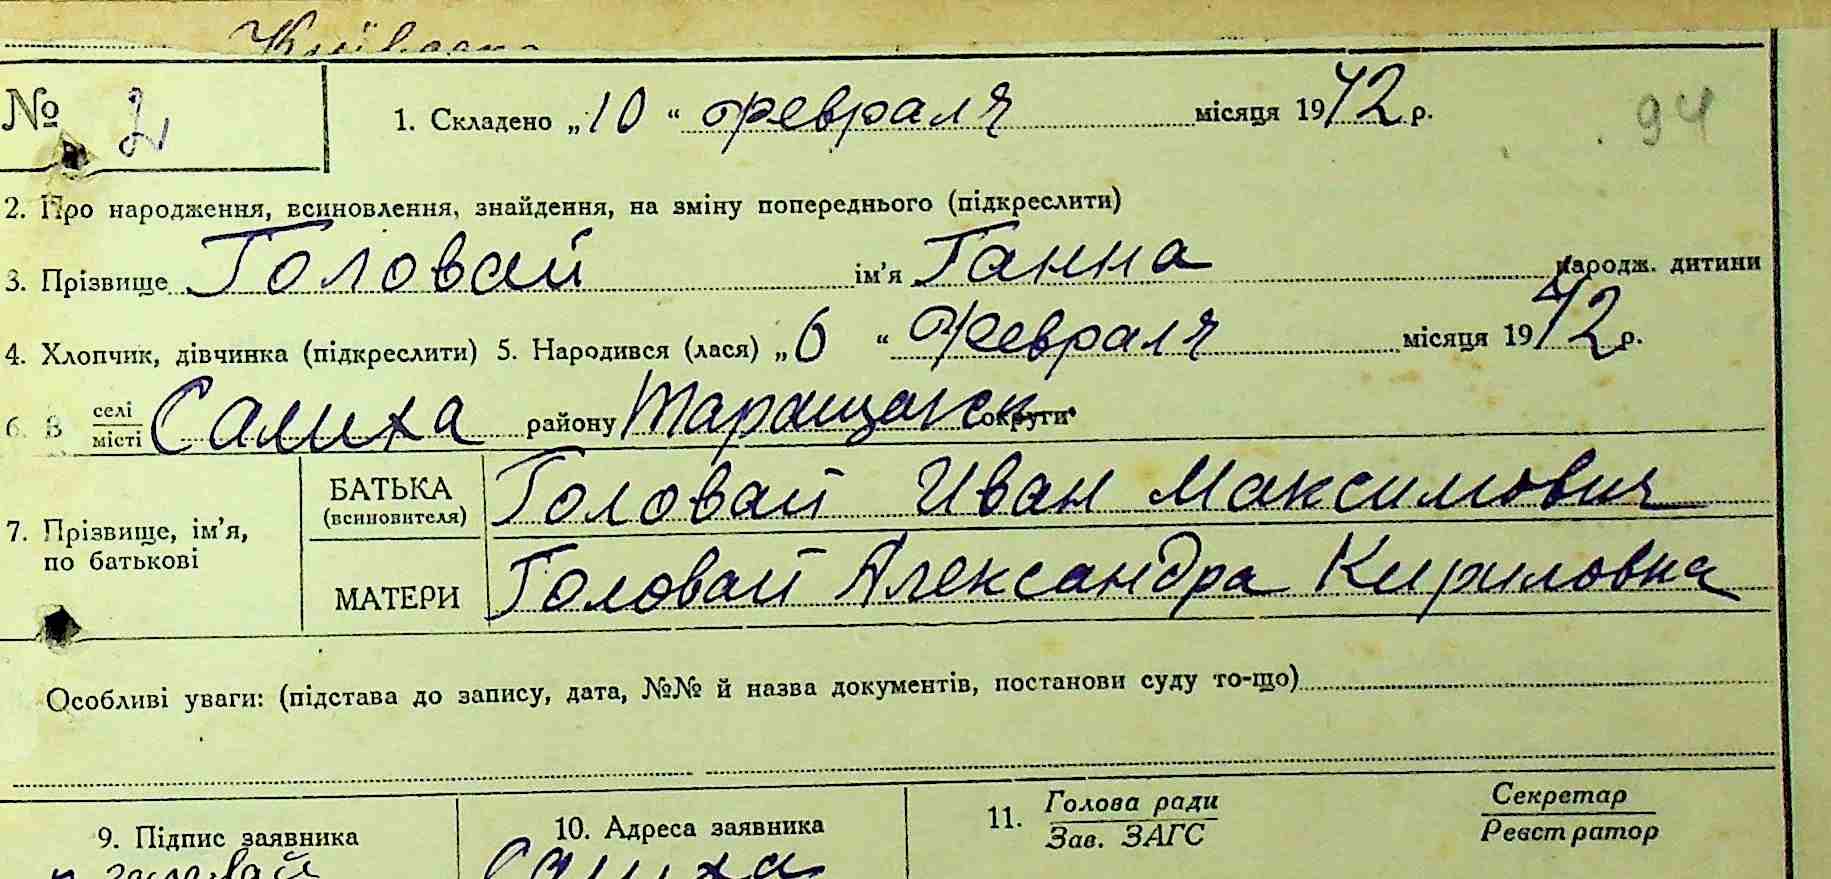 № 2
1. Складено „10“ февраля місяця 1942 р.
94
2. Про народження, всиновлення, знайдення, на зміну попереднього (підкреслити)
3. Прізвище Головай ім'я Ганна народж. дитини
4. Хлопчик, дівчинка (підкреслити) 5. Народився (лася) „6“ февраля місяця 1942 р.
6. В селі/місті Салиха району Таращанск округи
7. Прізвище, ім'я, по батькові
БАТЬКА (всиновителя) Головай Иван Максимович
МАТЕРИ Головай Александра Кириловна
Особливі уваги: (підстава до запису, дата, №№ й назва документів, постанови суду то-що)
9. Підпис заявника
10. Адреса заявника
11. Голова ради/Зав. ЗАГС
Секретар/Реєстратор
Салиха